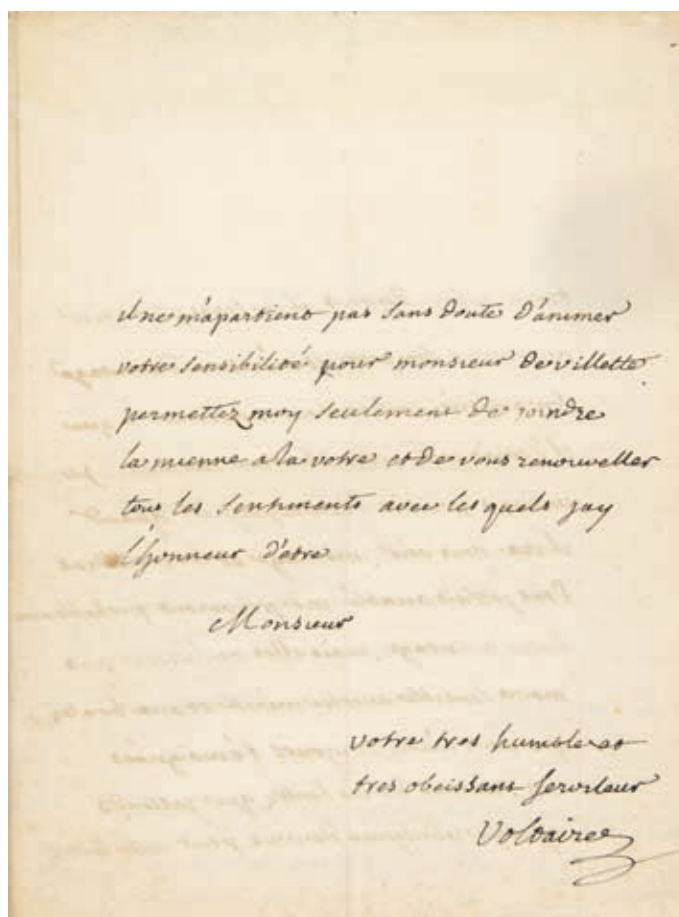 il ne m'apartient pas sans doute d'animer
votre sensibilité pour monsieur de villette
permettez moy seulement de joindre
la mienne a la votre et de vous renouveller
tous les sentiments avec les quels jay
l'honneur d'etre
Monsieur
votre tres humble et
tres obeissant serviteur
Voltaire